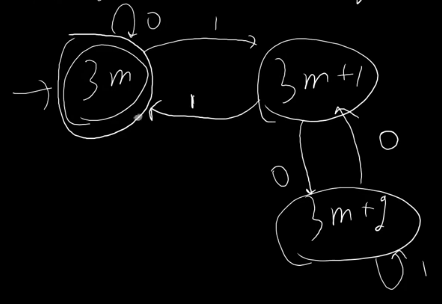 0
1
3m
3m+1
1
0
0
3m+2
1